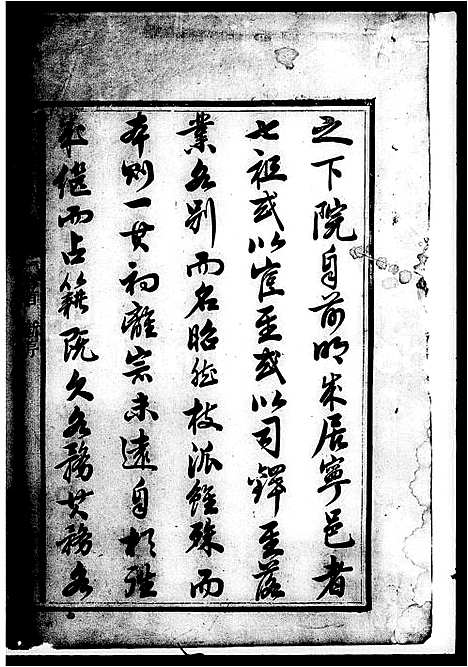 之下院自前明來居寧邑者
七祖或以宦至或以司鐸至落
業各別而名昭然枝派雖殊而
本則一其初離宗未遠自相
繼而占籍既久各務其務各